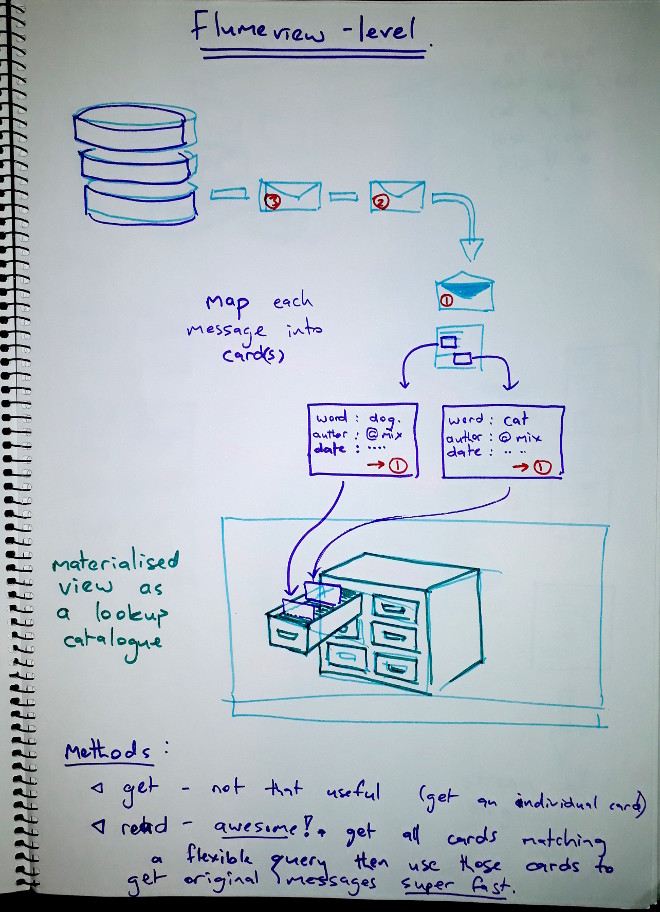 Flumeview - level.
3
2
1
Map each
message into
card(s)
word : dog.
author : @mix
date : ....
→ 1
word : cat
author : @mix
date : .. ..
→ 1
materialised
view as
a lookup
catalogue
Methods :
◁ get - not that useful (get an individual card)
◁ read - awesome!. get all cards matching
a flexible query then use those cards to
get original messages super fast.